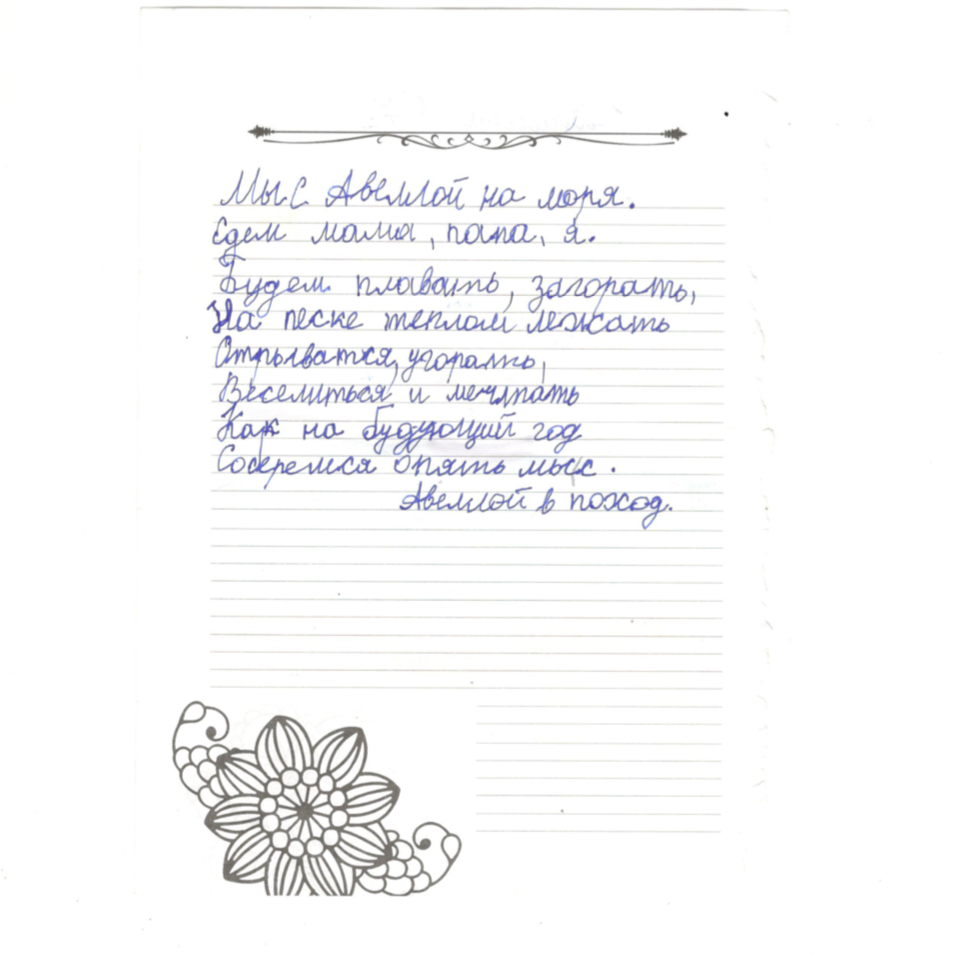 Мы с Авеллой на моря.
Едем мама, папа, я.
Будем плавать, загорать,
На песке теплом лежать
Отрыватся, угорать,
Веселиться и мечтать
Как на будующий год
Соберемся опять мы с.
Авеллой в поход.